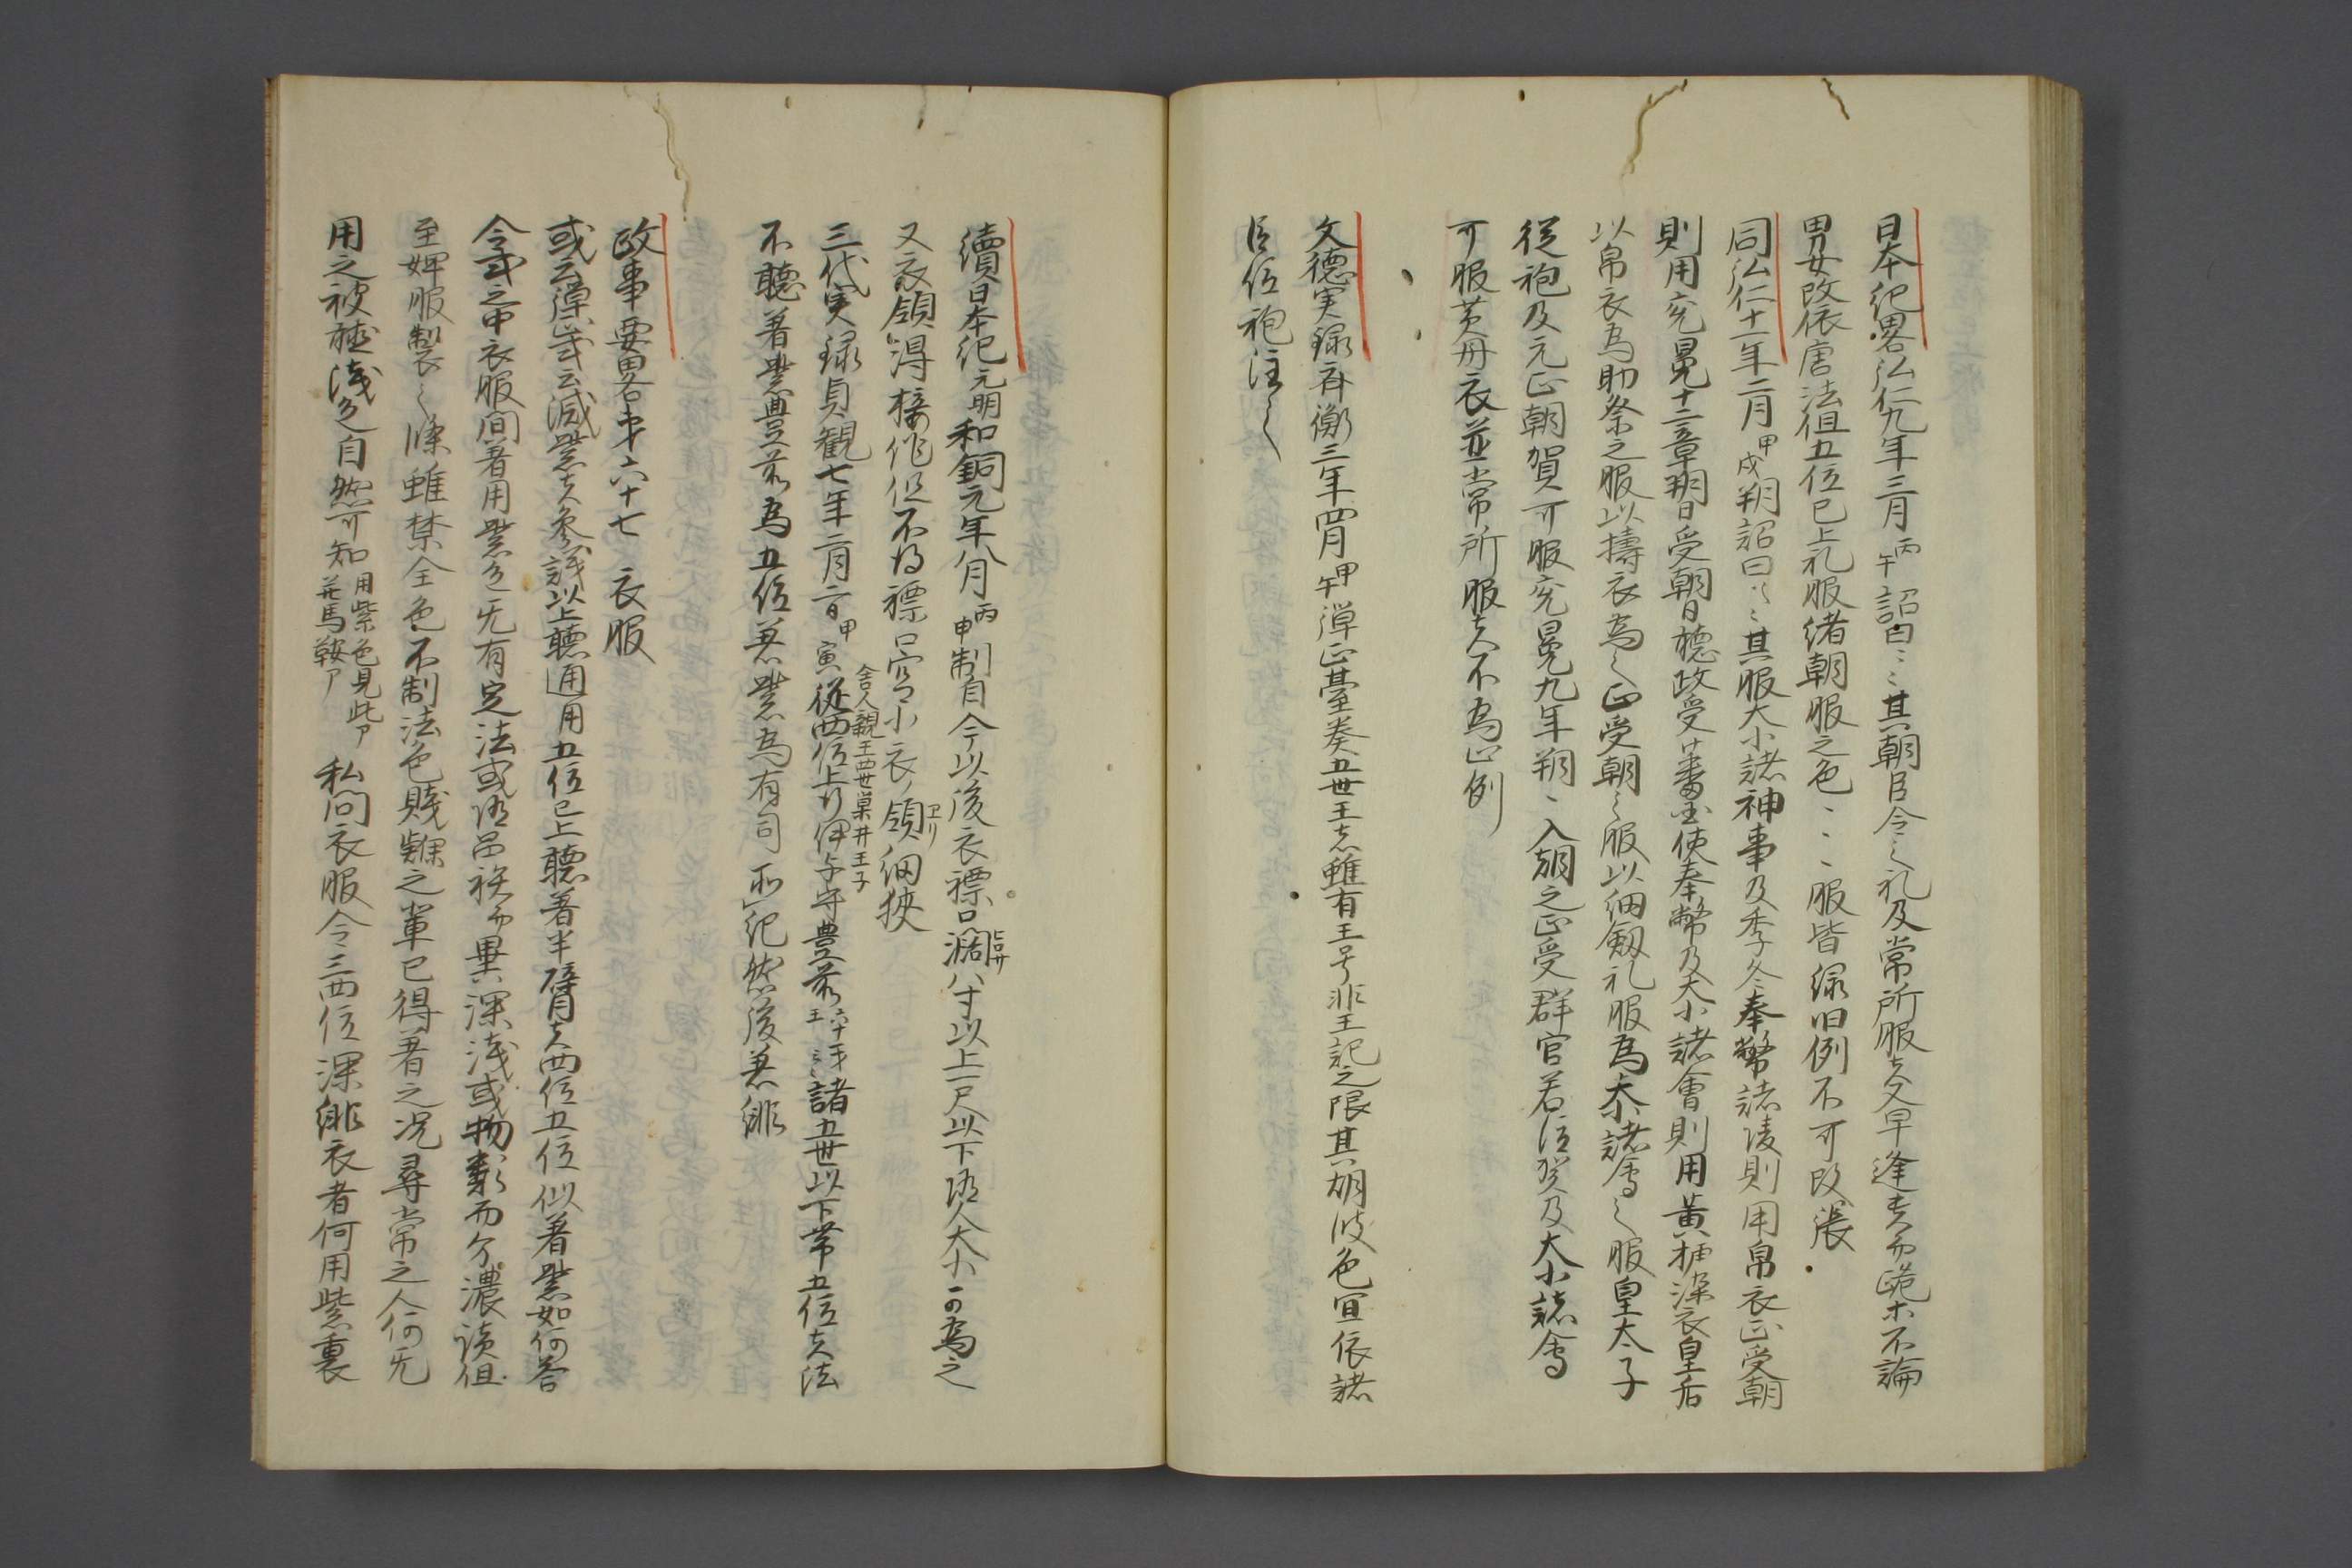 日本紀畧弘仁九年三月丙午詔曰〻〻其朝官令之礼及常所服者又卑逢貴而跪木不論
男女改依唐法但五位已上礼服緒朝服之色〻〻服皆緑旧例不可改張
同弘仁十一年二月甲戌朔詔曰〻〻其服大小諸神事及季冬奉幣諸陵則用帛衣正受朝
則用兖冕十二章朔日受朝日聴政受蕃国使奉幣及大小諸會則用黄櫨染衣皇后
以帛衣為助祭之服以擣衣為之正受朝之服以細釵礼服為大小諸會之服皇太子
従祀及元正朝賀可服兖冕九年朔〻入朝之正受群官若
及大小諸會
可服黄丹衣並常所服者不為此例
文徳実録斉衡三年四月甲午弾正臺奏五世王者雖有王号非王
之限其朝
色宜依諸
臣位袍注之
續日本紀元明和銅元年八月丙申制自今以後衣褾口濶八寸以上一尺以下随人大小
為之
又衣領得接作但不得褾口窄小衣領細狭
三代実録貞観七年二月二日甲寅従四位上行伊与守豊前王
諸五世以下帯五位者法
舎人親王四世
井王子
不聴著紫豊前為五位著紫為有司
糺然後著緋
政事要畧第六十七　衣服
或云弾式云減紫者参議以上聴通用五位已上聴著半臂者四位五位似著紫如何答
令式之中衣服間著用紫色无有定法或随品秩而異深浅或物類而分濃淡但
至婢服製之條雖禁全色不制法色賤
之輩已得著之况尋常之人何无
用之
浅色自然可知用紫色見此
并馬鞍
私問衣服令三四位深緋衣者何用紫裏